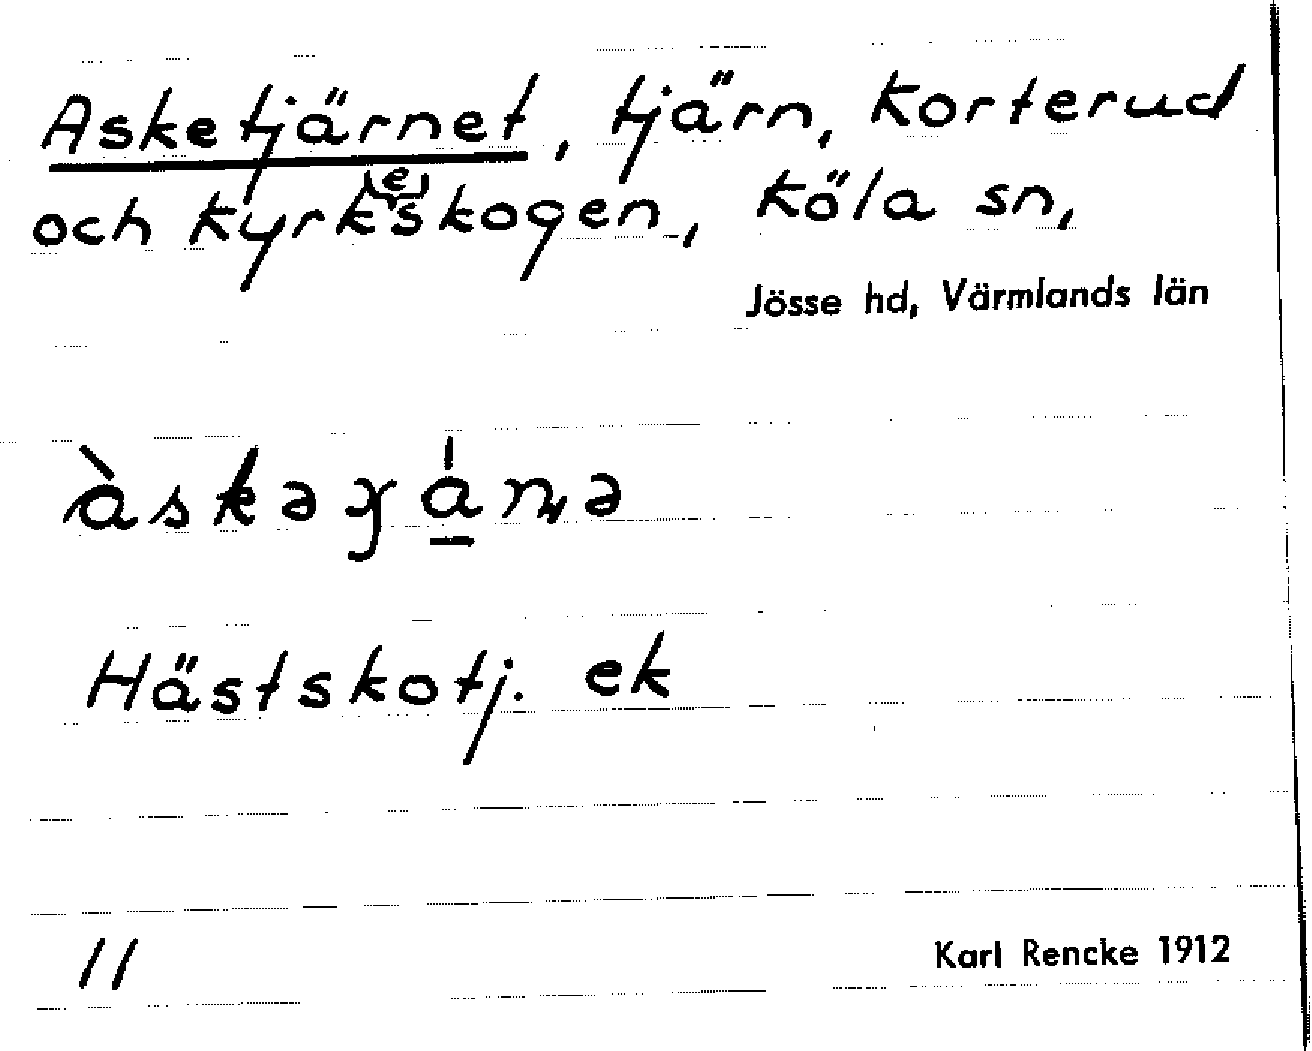 Asketjärnet, tjärn, Korterud
och Kyrk(e)skogen, Köla sn,
Jösse hd, Värmlands län
àskəɣá̲nə
Hästskotj. ek
11
Karl Rencke 1912